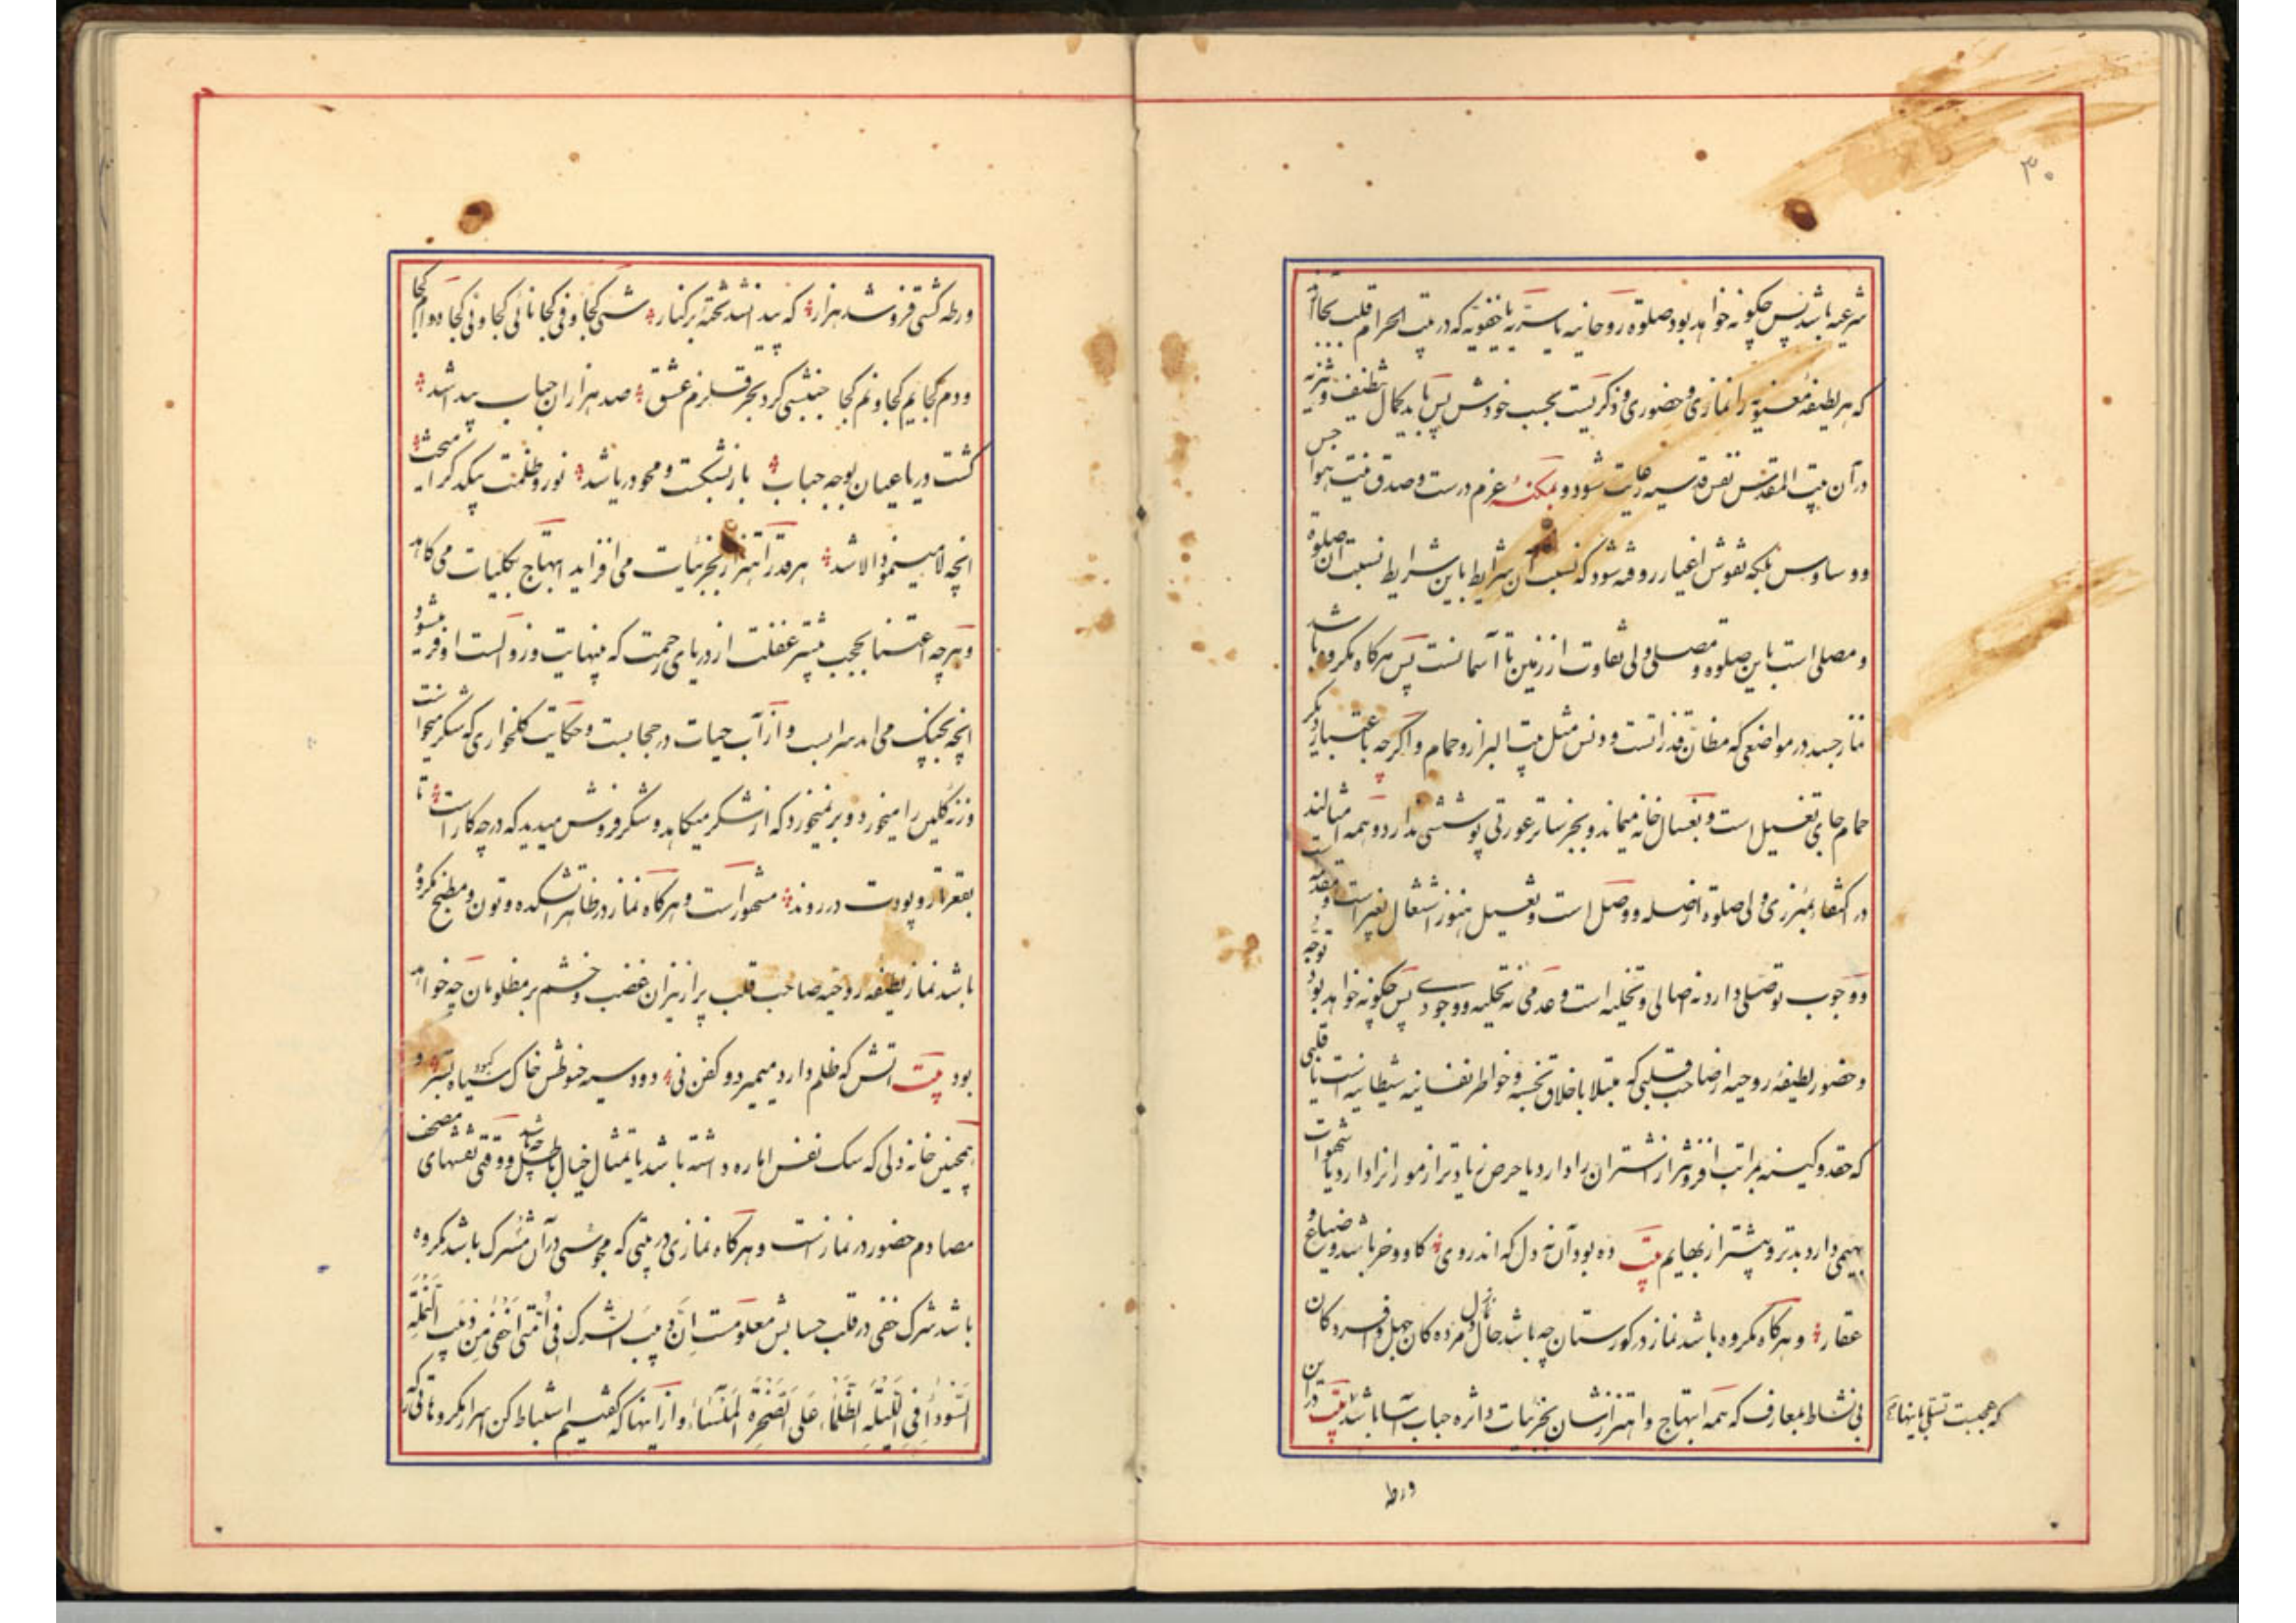 ۳۰
شرعیه باشد پس چکونه خواهد بود صلوة روحانیه یا سریه یا خفویه که در بیت الحرام قلب بجا آ
که هر لطیفه معنویه را نمازی و حضوری و ذکریست بحسب خودش پس باید کمال تنظیف و تنزیه
در آن بیت المقدس نفس قدسیه رعایت شود و بمکنسه عزم درست و صدق نیت هواجس
و وساوس بلکه نقوش اغیار روفته شود که نسبت آن شرایط باین شرایط نسبت آن صلوة
و مصلی است باین صلوة و مصلی ولی تفاوت از زمین تا آسمانست پس هرکاه مکروه باشد
نماز جسد در مواضعی که مظان قذراتست و دنس مثل بیت البراز و حمام و اکرچه باعتبار دیکر
حمام جای تغسیل است و بغسال خانه میماند و بجز ساتر عورتی پوششی ندارد و همه امثالند
در اکتفا بمئزری ولی صلوة از صله و وصل است و تغسیل هنوز اشتغال بغیر است و مقدمه است
و وجوب توصلی دارد نه اصالی و تخلیه است و عدمی نه تحلیه و وجودی پس چکونه خواهد بود توجه
و حضور لطیفه روحیه از صاحب قلبی که مبتلا باخلاق نجسه و خواطر نفسانیه شیطانیه است یا قلبی
که حقد و کینه بمراتب افزونتر از شتران را دارد یا حرص زیادتر از مور را دارد یا شهوات
بهیمی دارد بدتر و بیشتر از بهایم بیت ده بود آن نه دل که اندر وی کاو و خر باشد و ضیاع و
عقار و هرکاه مکروه باشد نماز در کورستان چه باشد حال نماز دل مرده کان جهل و افسردکان
بی نشاط بمعارف که همه ابتهاج و اهتزازشان بجزئیات داثره حباب آسا باشد بیت در این
که عجبست تسلی باینها
ورطه
ورطه کشتی فرو شد هزار که پیدا نشد تختۀ برکنار شیی کجا و فی کجا نائی کجا و نی کجا دوام کجا
و دم کجا یم کجا و نم کجا جنبشی کرد بحر قلزم عشق صد هزاران حباب پیدا شد
کشت دریا عیان بوجه حباب باز بشکست و محو دریا شد نور و ظلمت بیکدکر آمیخت
انچه لا مینمود الا شد هر قدر اهتزاز بجزئیات می افزاید ابتهاج بکلیات می کاهد
و هر چه اعتنا بحجب بیشتر غفلت از دریای رحمت که بینهایت و زوالست اوفر میشود
انچه بچنک می اید سرابست و از آب حیات در حجابست و حکایت کلخواری که شکر میخواست
وزنه کلین را میخورد و برنمیخورد که از شکر میکاهد و شکر فروش میدید که در چه کار است تا
بقعر تار و پودت در روند مشهور است و هرکاه نماز در ظاهر اتشکده و تون و مطبخ مکروه
باشد نماز لطیفه روحیه صاحب قلب پر از نیران غضب و خشم بر مظلومان چه خواهد
بود بیت اتش که ظلم دارد میمیرد و کفن نی دود سیه حنوطش خاک سیاه کبود بستر و
همچنین خانه دلی که سک نفس اماره داشته باشد یا تمثال خیال باطل چه باشد و وقتی نقشهای مصحف
مصادم حضور در نماز است و هرکاه نمازی در بیتی که مجوسی در آن مشرک باشد مکروه
باشد شرک خفی در قلب حسابش معلومست اِنَّ دبیبَ الشرک فی اُمّتی اَخفی مِن دَبیب النَّملَةِ
السَّوداءِ فی اللَّیلَةِ الظَّلماء عَلَی الصَّخرَةِ المَلساء و از اینها که کفتیم استنباط کن اسرار مکروهات